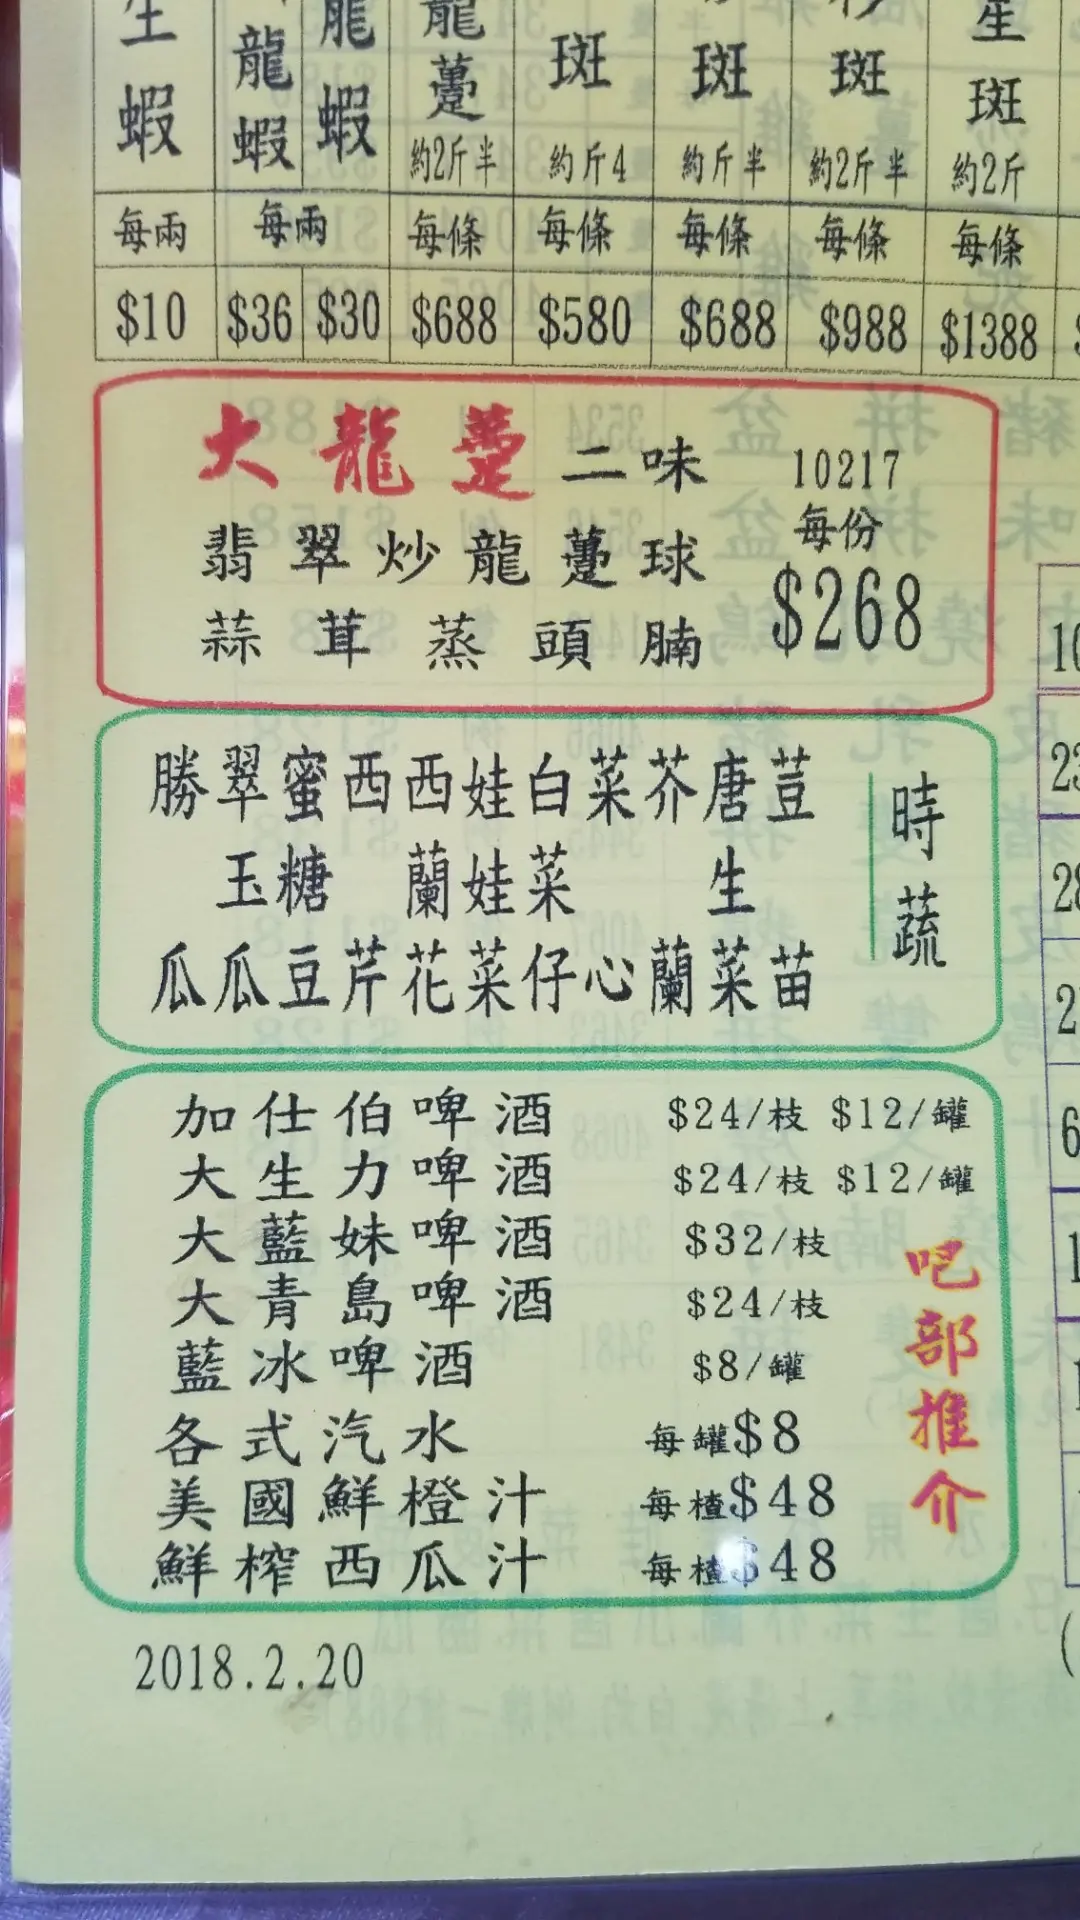 生 龍 龍 龍 斑 斑 斑 星
蝦 蝦 蝦 躉 斑
約2斤半 約斤4 約斤半 約2斤半 約2斤
每兩 每兩 每條 每條 每條 每條 每條
$10 $36 $30 $688 $580 $688 $988 $1388
大龍躉二味 10217
翡翠炒龍躉球 每份
蒜茸蒸頭腩 $268
時蔬
荳苗
唐生菜
芥蘭
菜心
白菜仔
娃娃菜
西蘭花
西芹
蜜糖豆
翠玉瓜
勝瓜
加仕伯啤酒 $24/枝 $12/罐
大生力啤酒 $24/枝 $12/罐
大藍妹啤酒 $32/枝
大青島啤酒 $24/枝
藍冰啤酒 $8/罐
各式汽水 每罐$8
美國鮮橙汁 每楂$48
鮮榨西瓜汁 每楂$48
吧部推介
2018.2.20